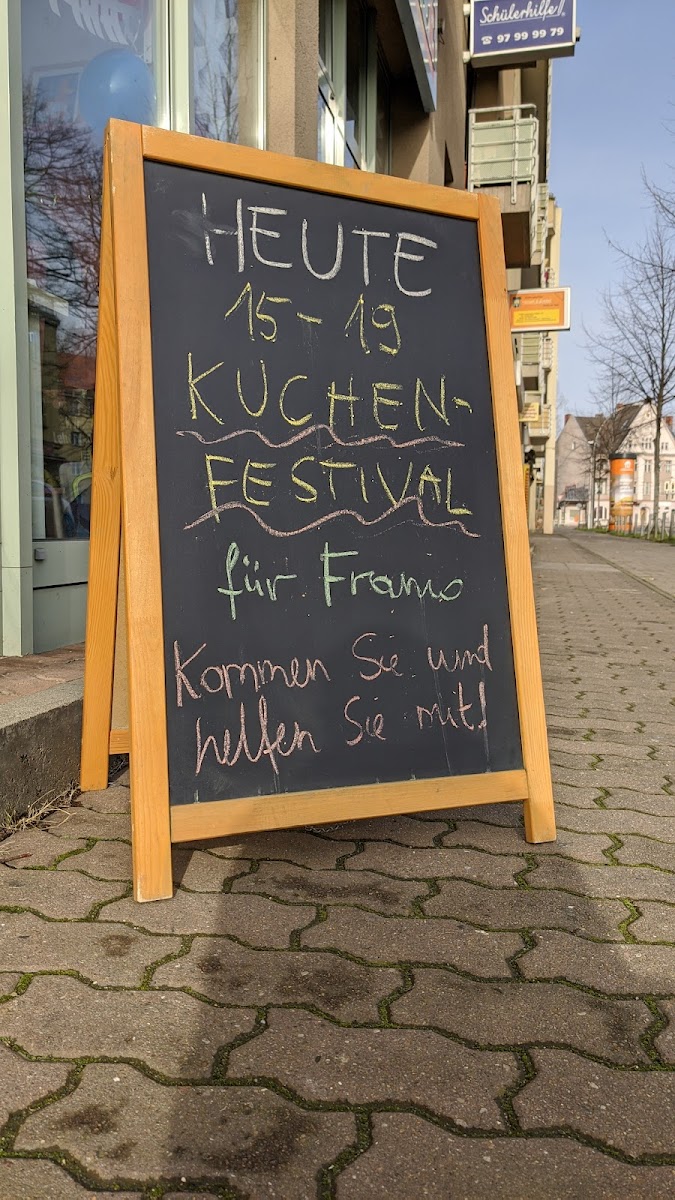 Schülerhilfe!
☎ 97 99 99 79
HEUTE
15 - 19
KUCHEN-
FESTIVAL
für Framo
Kommen Sie und
helfen Sie mit!